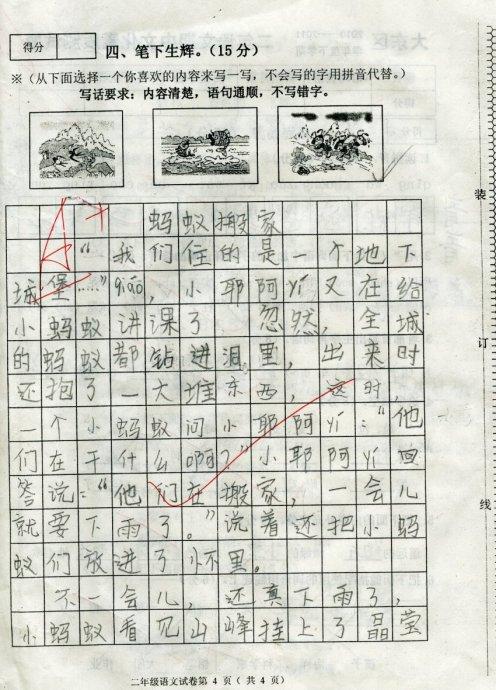 得分
四、笔下生辉。(15分)
※(从下面选择一个你喜欢的内容来写一写，不会写的字用拼音代替。)
写话要求：内容清楚，语句通顺，不写错字。
蚂蚁搬家
“我们住的是一个地下
城堡……”qiáo，小耶阿yí又在给
小蚂蚁讲课了 忽然，全城
的蚂蚁都钻进洞里，出来时
还抱了一大堆东西，这时，
一个小蚂蚁问小耶阿yí：“他
们在干什么啊？”小耶阿yí回
答说：“他们在搬家，一会儿
就要下雨了。”说着还把小蚂
蚁们放进了 里。
不一会儿，还真下雨了，
小蚂蚁看见山峰挂上了晶莹
装
订
线
二年级语文试卷第 4 页（共 4 页）